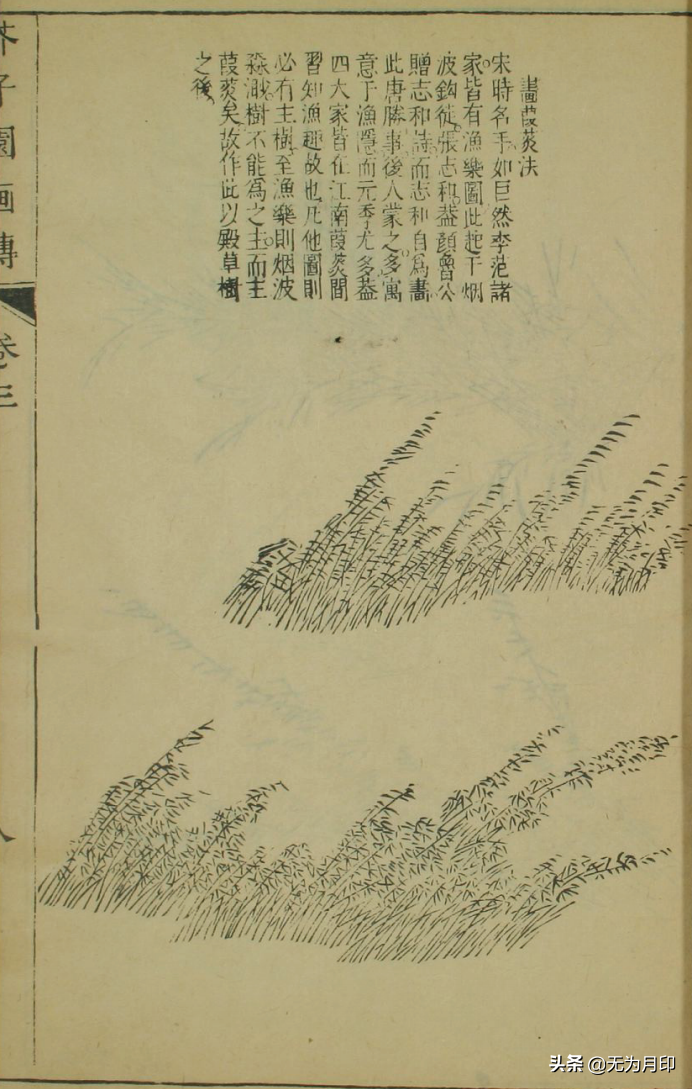 畫葭菼法
宋時名手如巨然李范諸
家皆有漁樂圖此起于烟
波釣徒張志和葢顏魯公
贈志和詩而志和自為畫
此唐勝事後人蒙之多寓
意于漁隱而元季尤多葢
四大家皆在江南葭菼間
習知漁趣故也凡他圖則
必有主樹至漁樂則烟波
淼樹不能為之主而主
葭菼矣故作此以殿草樹
之後
芥子園画傳
卷三
八
头条 @无为月印